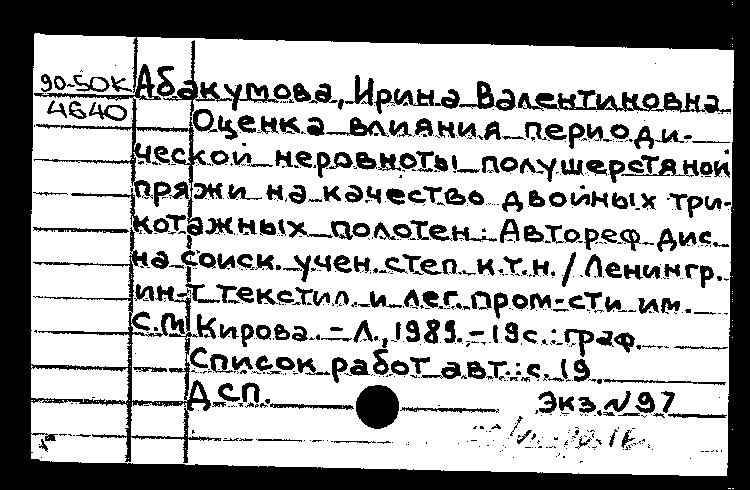 90-50к Абакумова, Ирина Валентиновна
4640 Оценка влияния периоди-
ческой неровноты полушерстяной
пряжи на качество двойных три-
котажных полотен: Автореф дис.
на соиск. учен. степ. к.т.н. / Ленингр.
ин-т текстил. и лег. пром-сти им.
С.М. Кирова. - Л., 1989. - 19 с.: граф.
Список работ авт.: с. 19
ДСП. Экз. N 97